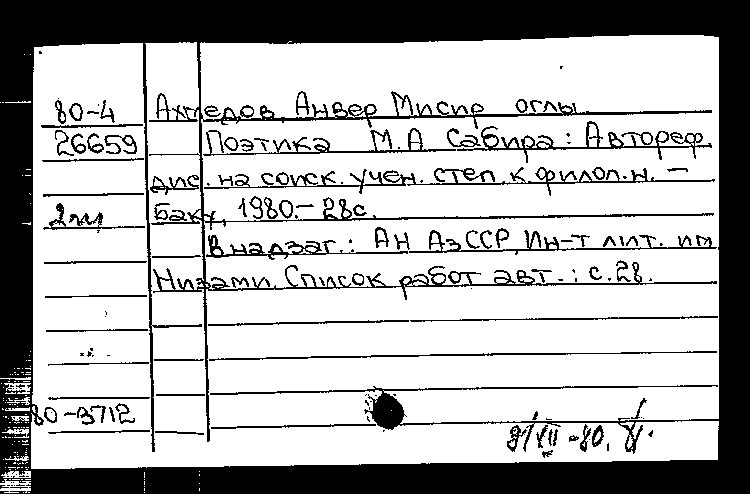 80-4 Ахмедов, Анвер Мисир оглы.
26659 Поэтика М.А Сабира: Автореф.
дис. на соиск. учен. степ. к. филол. н. —
Баку, 1980. - 28с.
В надзаг.: АН АзССР, Ин-т лит. им
Низами. Список работ авт.: с.28.
80-3712